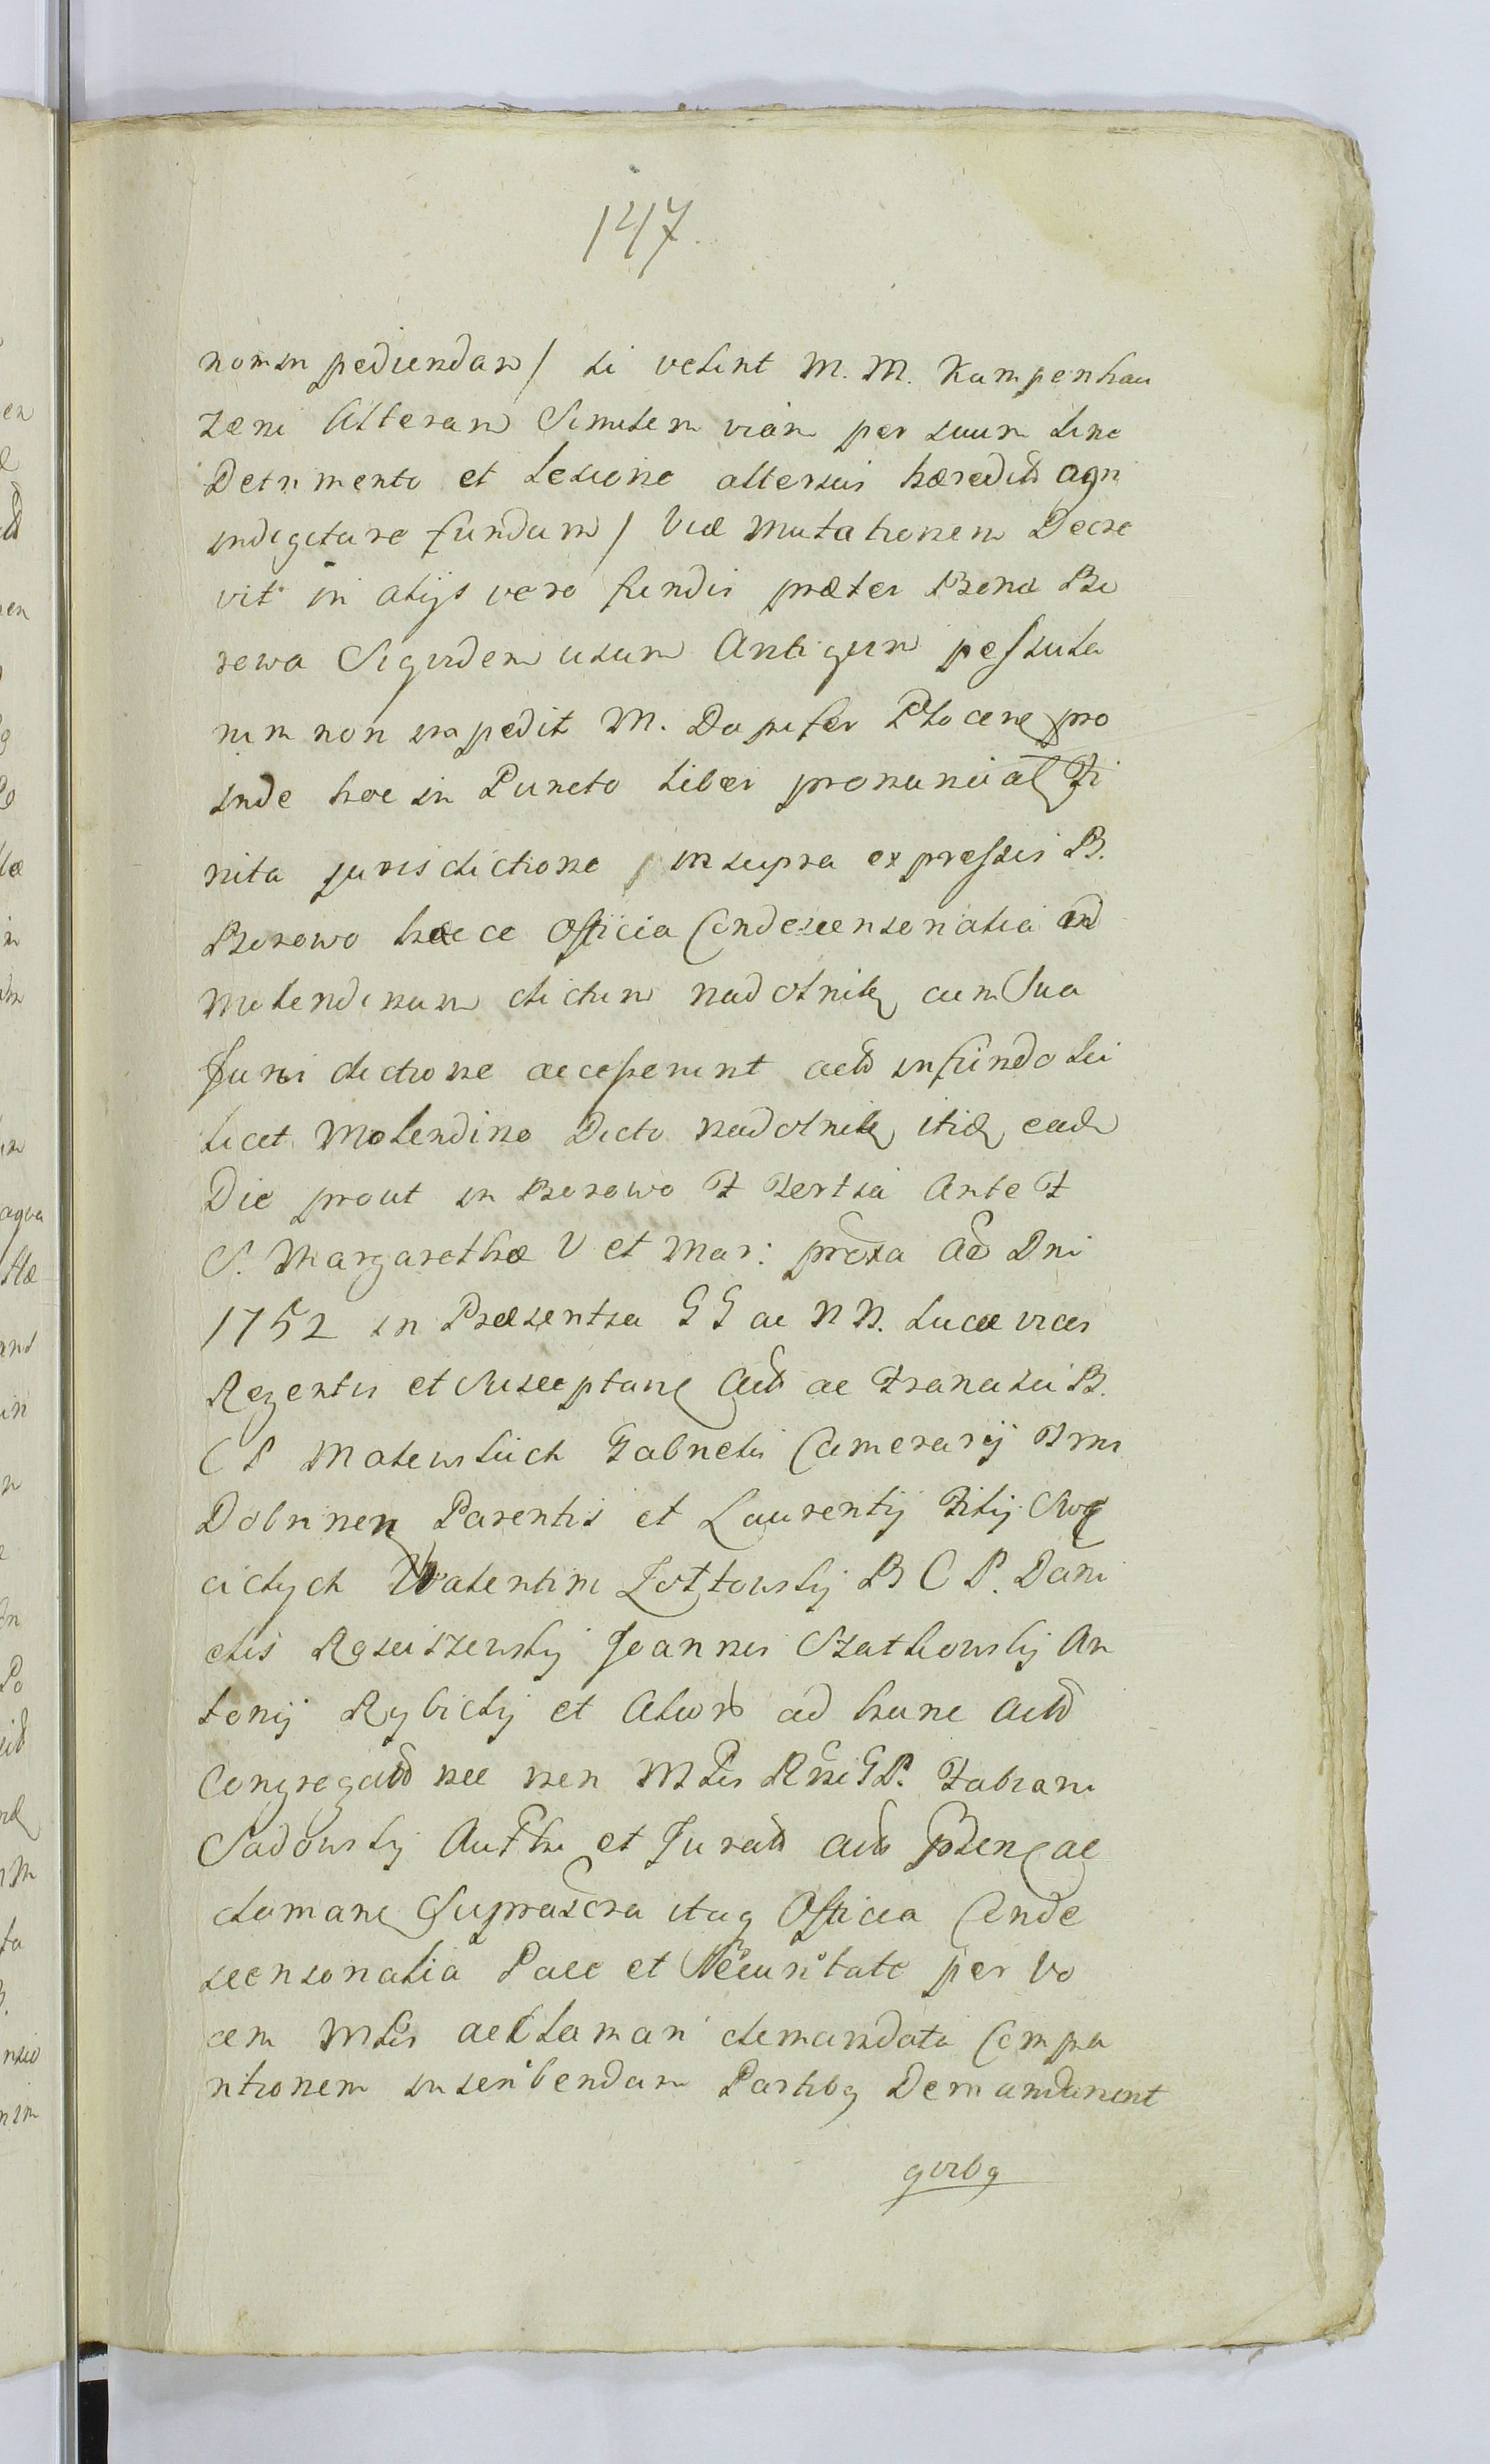 147.
non impediendam / si velint M. M. Kampenhau
zeni alteram Similem viam per suum sine
Detrimento et Lesione alterius hæredis agri
indigitare fundum / viæ mutationem Decre
vit in alijs vero fundis præter Bona Bo
rowa Siquidem usum Antiquum pessula
rum non impedit M. Dapifer Plocen pro
inde hoc in Puncto liber pronunciat Fi
nita jurisdictione in supra expressis B.
Borowo hæcce Officia Condescensorialia ad
Molendinum dictum nadolnik cum Sua
Jurisdictione accesserunt actu in fundo sci
licet Molendino Dicto nadolnik itid eadem
Die prout in Borowo F Tertia Ante F
S. Margarethæ V et Mar: proxa Ao Dni
1752 in Præsentia GG ac NN. Lucæ vices
Regentis et Susceptan Act ac Francisci B.
C P Malewskich Gabrielis Camerarij Trris
Dobrinen Parentis et Laurentij Filij Swę
cickych Valentini Zołtowskij B C P. Dani
elis Rosciszewskij Joannis Szatkowskij An
tonij Rybickij et Alior ad hunc actum
Congregatorum nec non Mtlis Rni GP. Fabiani
Sadowskij Authen et Jurati actu pnden ac
clamane Suprascra itaq Officia Conde
scensorialia Pace et Securitate per Vo
cem Mtlis acclamari demandata Compa
ritionem inscribendam Partibq Demandarunt
quibq